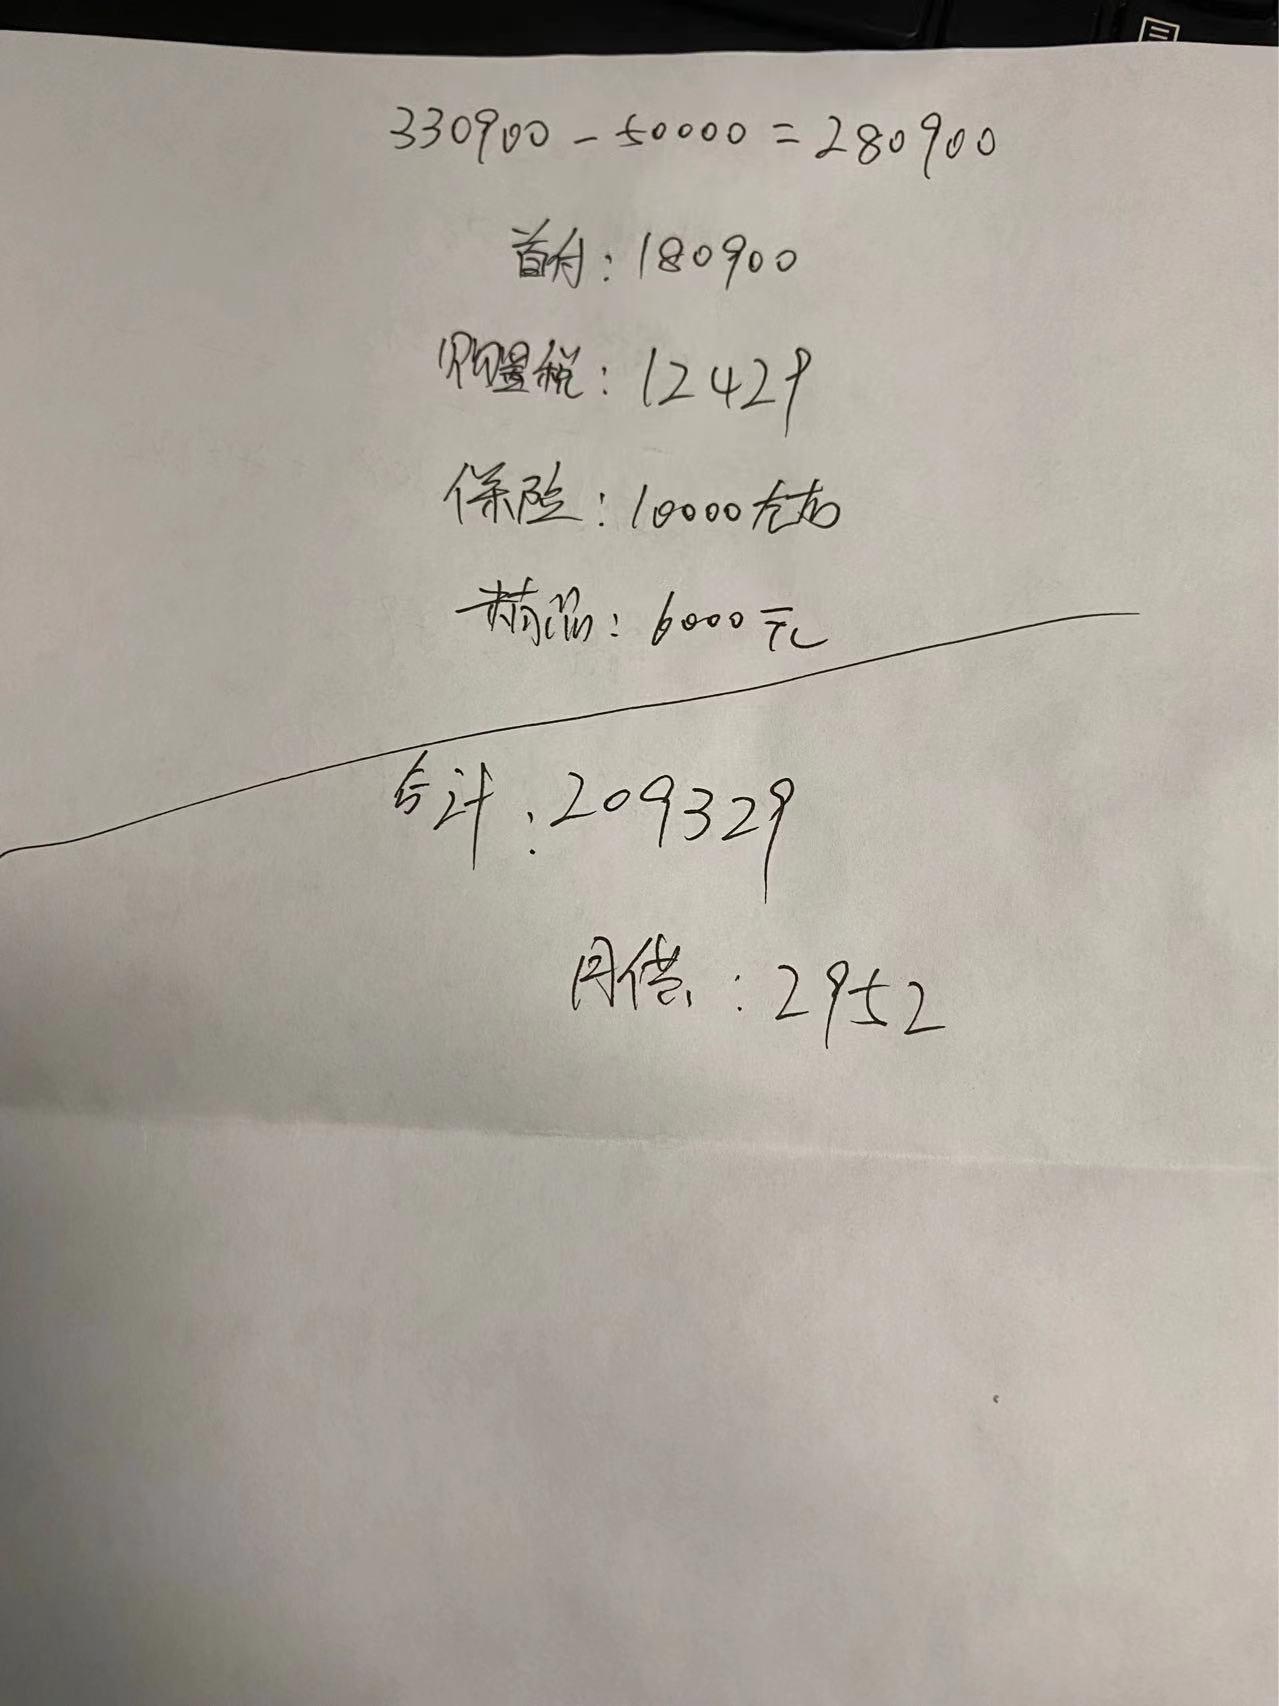 330900-50000=280900
首付：180900
购置税：12429
保险：10000左右
精品：6000元
合计：209329
月供：2952